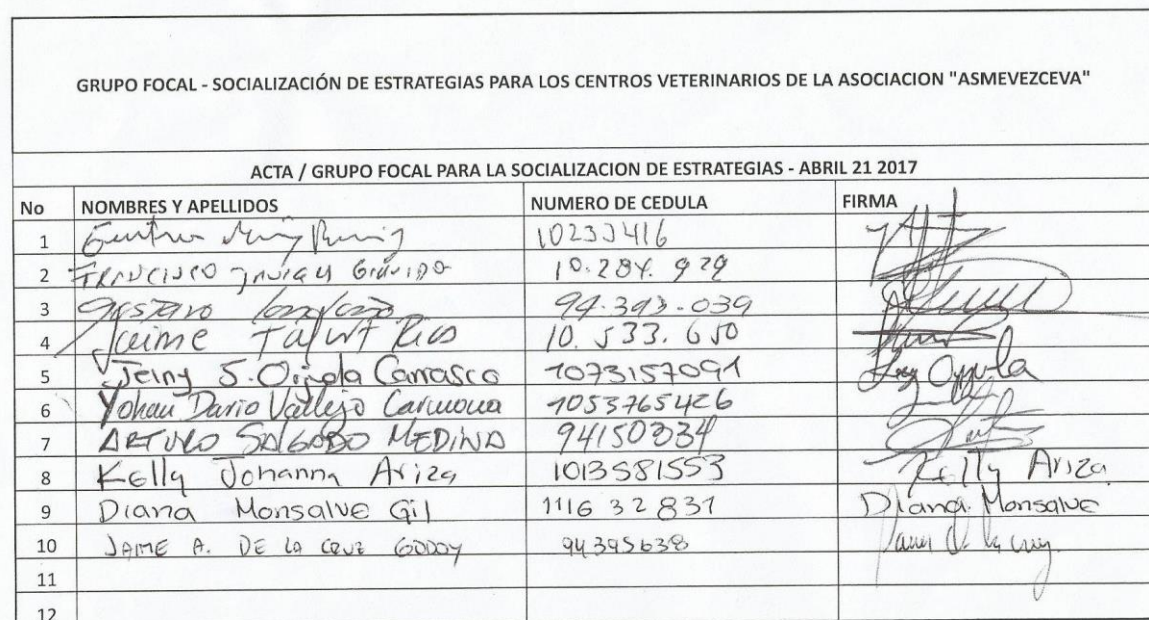 GRUPO FOCAL - SOCIALIZACIÓN DE ESTRATEGIAS PARA LOS CENTROS VETERINARIOS DE LA ASOCIACION "ASMEVEZCEVA"
ACTA / GRUPO FOCAL PARA LA SOCIALIZACION DE ESTRATEGIAS - ABRIL 21 2017
No NOMBRES Y APELLIDOS NUMERO DE CEDULA FIRMA
1 10233416
2 FRANCISCO JAVIER 10.284.929
3 GUSTAVO 94.393.039
4 Jaime Tafurt Rios 10.533.650
5 Jeiny S. Carrasco 1073157091
6 Yohan Dario Vallejo Carmona 1053765426
7 ARTURO SALGADO MEDINA 94150334
8 Kelly Johanna Ariza 1013581553 Kelly Ariza
9 Diana Monsalve Gil 1116 32 831 Diana Monsalve
10 JAIME A. DE LA CRUZ GODOY 94395638
11
12